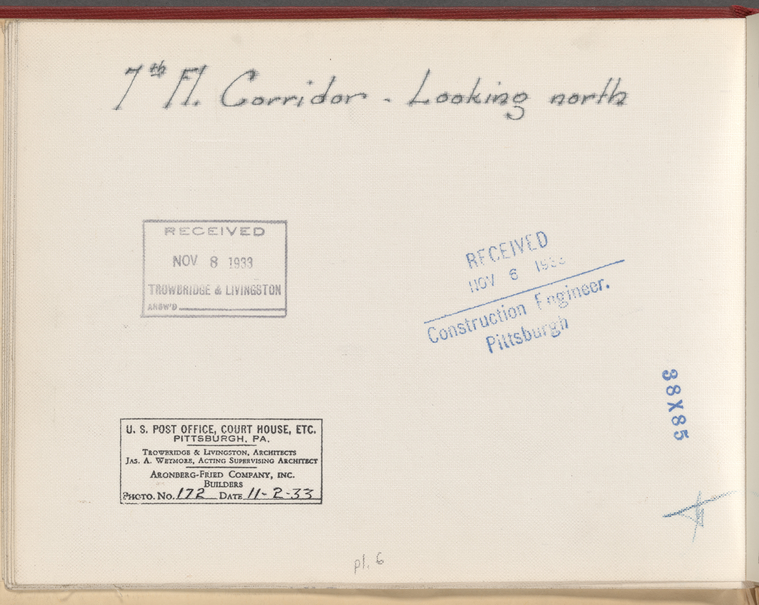 7th Fl. Corridor - Looking north
RECEIVED
NOV 8 1933
TROWBRIDGE & LIVINGSTON
ANSW'D
RECEIVED
NOV 6 1933
Construction Engineer.
Pittsburgh
38X85
U. S. POST OFFICE, COURT HOUSE, ETC.
PITTSBURGH, PA.
TROWBRIDGE & LIVINGSTON, ARCHITECTS
JAS. A. WETMORE, ACTING SUPERVISING ARCHITECT
ARONBERG-FRIED COMPANY, INC.
BUILDERS
PHOTO. NO. 172 DATE 11-2-33
pl. 6